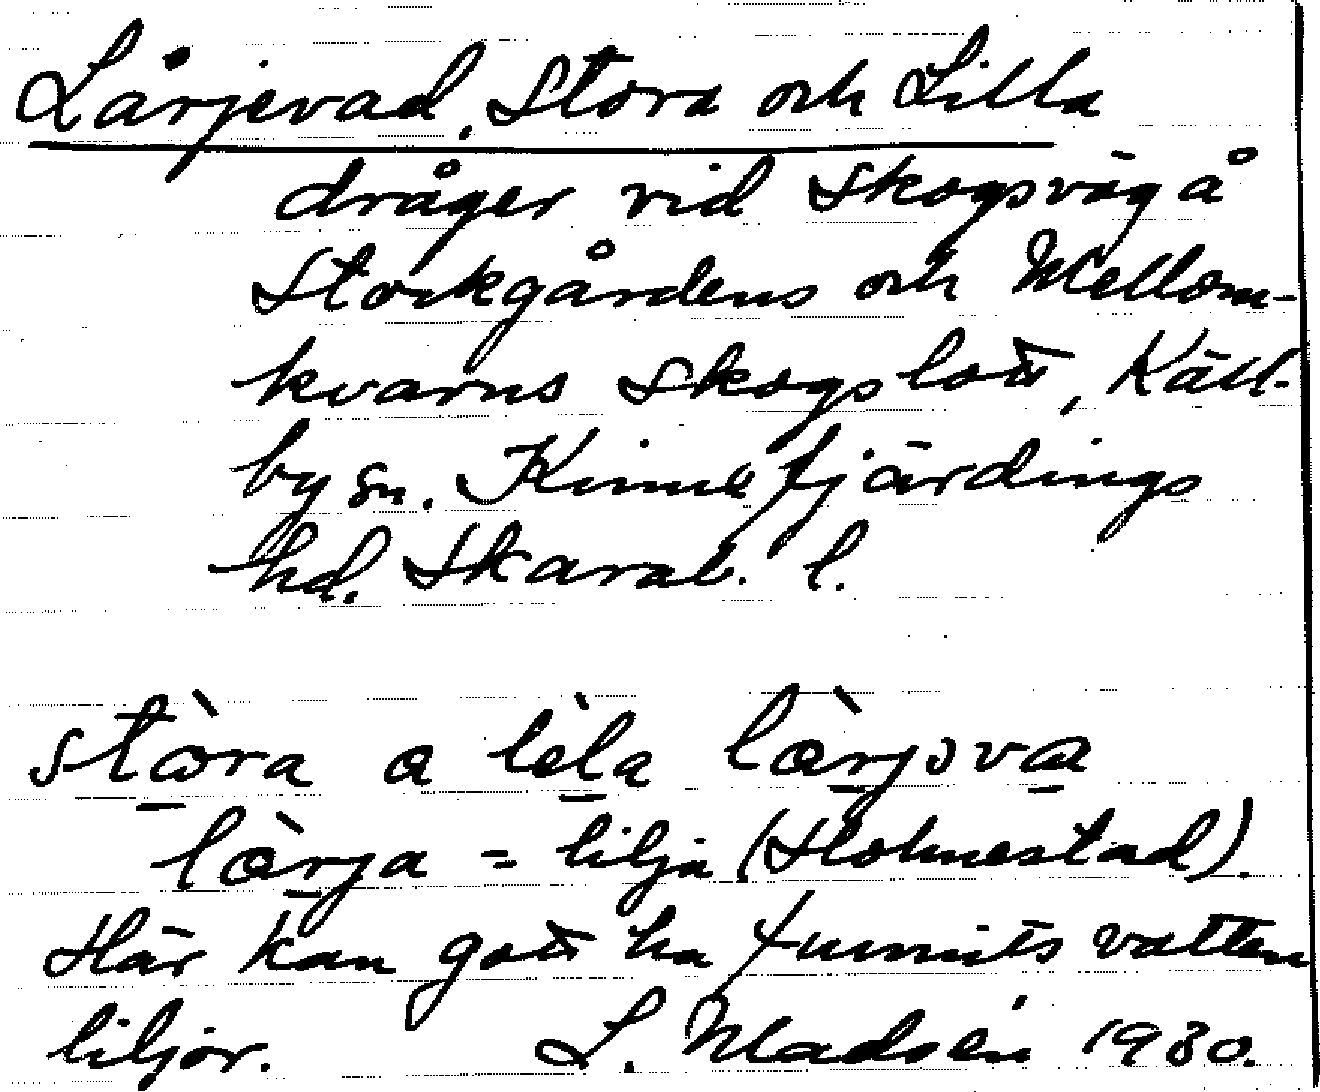 Lärjevad, Stora och Lilla
dråger vid Skogsväg å
Storkgårdens och Mellom-
kvarns Skogslott, Käll-
by sn. Kinnefjärdings
hd. Skarab. l.
stòra a lèla læ̀rjova
læ̀rja = lilja (Holmestad).
Här kan gott ha funnits vatten
liljor. L. Madsén 1930.